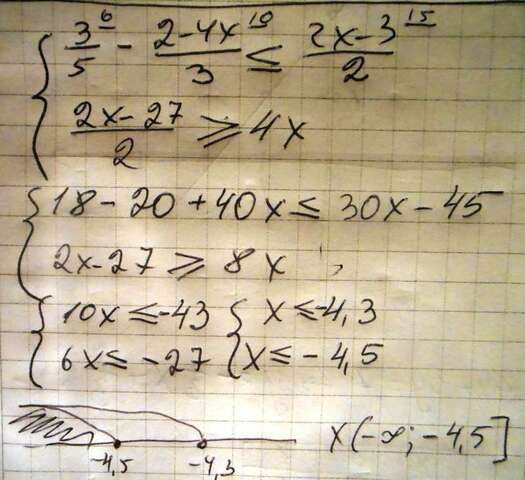 { 3/5 ⁶ - (2-4x)/3 ¹⁰ ≤ (2x-3)/2 ¹⁵
(2x-27)/2 ≥ 4x
{ 18-20+40x ≤ 30x-45
2x-27 ≥ 8x ;
{ 10x ≤ -43 { x ≤ -4,3
6x ≤ -27 { x ≤ -4,5
-4,5 -4,3 x(-∞; -4,5]